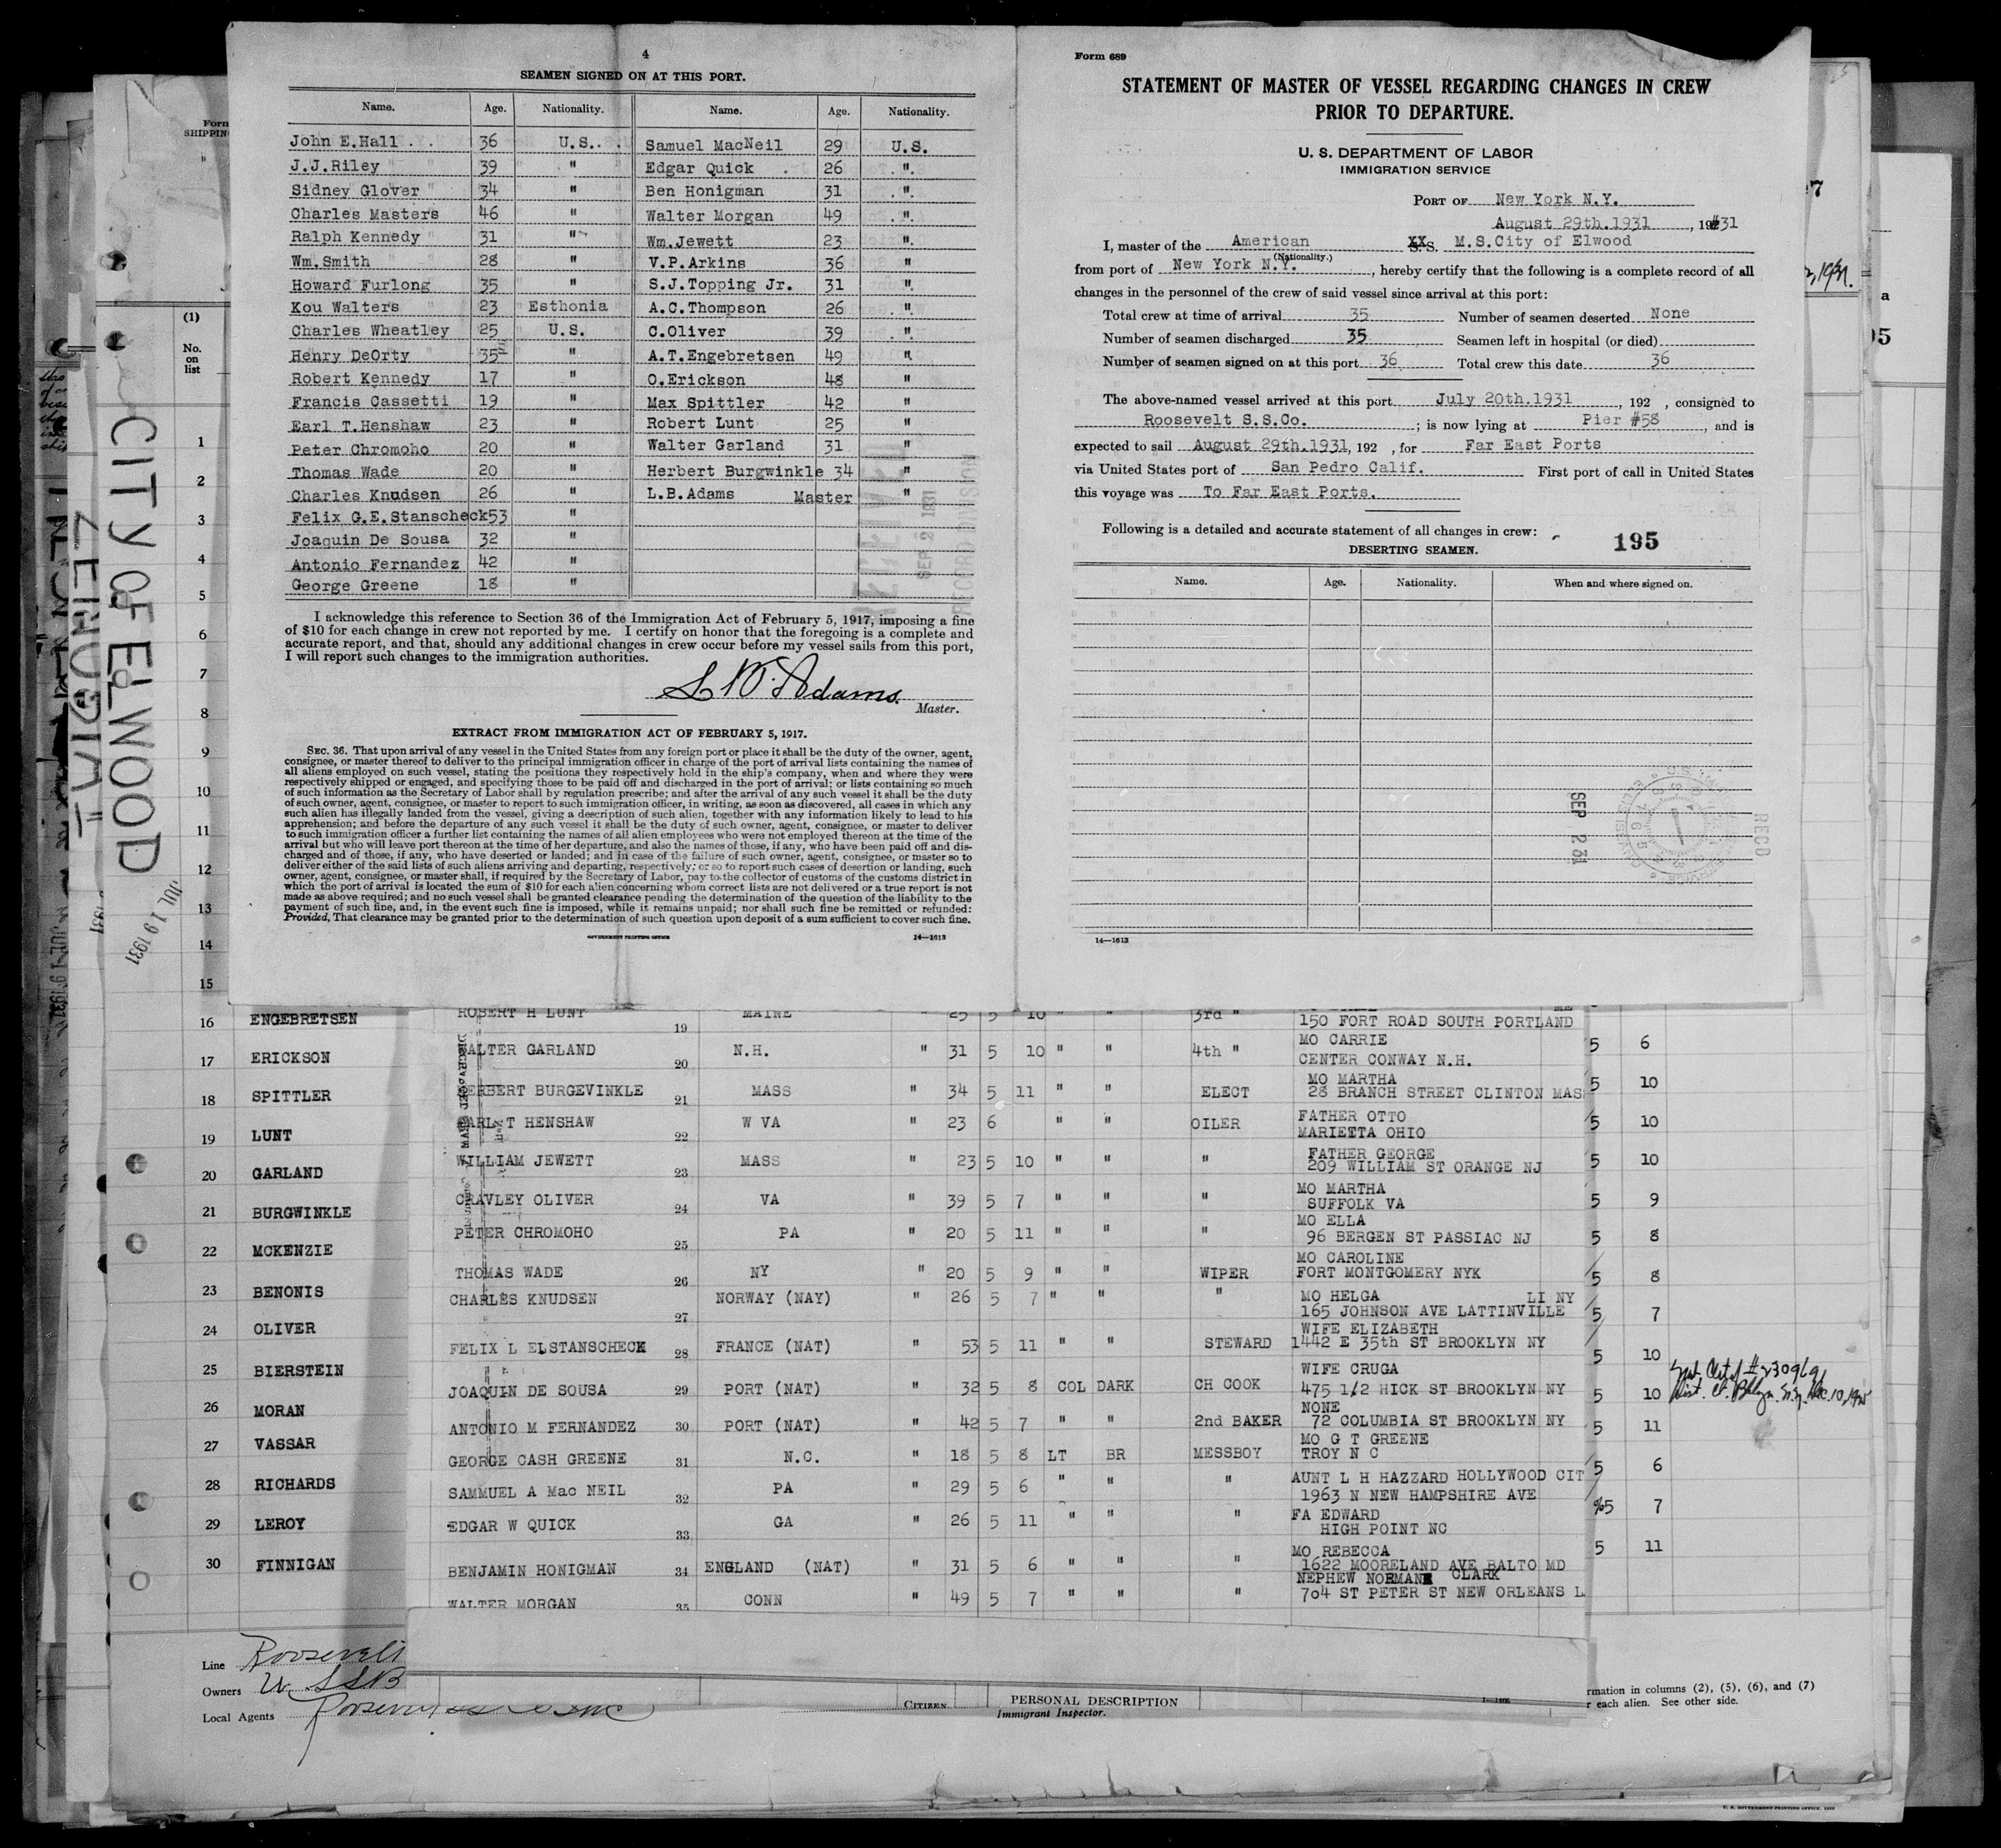 4
SEAMEN SIGNED ON AT THIS PORT.
Name. Age. Nationality. Name. Age. Nationality.
John E.Hall 36 U.S. Samuel MacNeil 29 U.S.
J.J.Riley 39 " Edgar Quick 26 "
Sidney Glover 34 " Ben Honigman 31 "
Charles Masters 46 " Walter Morgan 49 "
Ralph Kennedy 31 " Wm.Jewett 23 "
Wm.Smith 28 " V.P.Arkins 36 "
Howard Furlong 35 " S.J.Topping Jr. 31 "
Kou Walters 23 Esthonia A.C.Thompson 26 "
Charles Wheatley 25 U.S. C.Oliver 39 "
Henry DeOrty 35 " A.T.Engebretsen 49 "
Robert Kennedy 17 " O.Erickson 48 "
Francis Cassetti 19 " Max Spittler 42 "
Earl T.Henshaw 23 " Robert Lunt 25 "
Peter Chromoho 20 " Walter Garland 31 "
Thomas Wade 20 " Herbert Burgwinkle 34 "
Charles Knudsen 26 " L.B.Adams Master "
Felix G.E.Stanscheck 53 "
Joaquin De Sousa 32 "
Antonio Fernandez 42 "
George Greene 18 "
I acknowledge this reference to Section 36 of the Immigration Act of February 5, 1917, imposing a fine
of $10 for each change in crew not reported by me. I certify on honor that the foregoing is a complete and
accurate report, and that, should any additional changes in crew occur before my vessel sails from this port,
I will report such changes to the immigration authorities.
Adams
Master.
EXTRACT FROM IMMIGRATION ACT OF FEBRUARY 5, 1917.
SEC. 36. That upon arrival of any vessel in the United States from any foreign port or place it shall be the duty of the owner, agent,
consignee, or master thereof to deliver to the principal immigration officer in charge of the port of arrival lists containing the names of
all aliens employed on such vessel, stating the positions they respectively hold in the ship's company, when and where they were
respectively shipped or engaged, and specifying those to be paid off and discharged in the port of arrival; or lists containing so much
of such information as the Secretary of Labor shall by regulation prescribe; and after the arrival of any such vessel it shall be the duty
of such owner, agent, consignee, or master to report to such immigration officer, in writing, as soon as discovered, all cases in which any
such alien has illegally landed from the vessel, giving a description of such alien, together with any information likely to lead to his
apprehension; and before the departure of any such vessel it shall be the duty of such owner, agent, consignee, or master to deliver
to such immigration officer a further list containing the names of all alien employees who were not employed thereon at the time of the
arrival but who will leave port thereon at the time of her departure, and also the names of those, if any, who have been paid off and dis-
charged and of those, if any, who have deserted or landed; and in case of the failure of such owner, agent, consignee, or master so to
deliver either of the said lists of such aliens arriving and departing, respectively; or so to report such cases of desertion or landing, such
owner, agent, consignee, or master shall, if required by the Secretary of Labor, pay to the collector of customs of the customs district in
which the port of arrival is located the sum of $10 for each alien concerning whom correct lists are not delivered or a true report is not
made as above required; and no such vessel shall be granted clearance pending the determination of the question of the liability to the
payment of such fine, and, in the event such fine is imposed, while it remains unpaid; nor shall such fine be remitted or refunded:
Provided, That clearance may be granted prior to the determination of such question upon deposit of a sum sufficient to cover such fine.
GOVERNMENT PRINTING OFFICE 14—1613
Form 689
STATEMENT OF MASTER OF VESSEL REGARDING CHANGES IN CREW
PRIOR TO DEPARTURE.
U. S. DEPARTMENT OF LABOR
IMMIGRATION SERVICE
PORT OF New York N.Y.
August 29th.1931, 1931
I, master of the American S.S. M.S.City of Elwood
(Nationality.)
from port of New York N.Y., hereby certify that the following is a complete record of all
changes in the personnel of the crew of said vessel since arrival at this port:
Total crew at time of arrival 35 Number of seamen deserted None
Number of seamen discharged 35 Seamen left in hospital (or died)
Number of seamen signed on at this port 36 Total crew this date 36
The above-named vessel arrived at this port July 20th.1931, 192 , consigned to
Roosevelt S.S.Co.; is now lying at Pier #58, and is
expected to sail August 29th.1931, 192 , for Far East Ports
via United States port of San Pedro Calif. First port of call in United States
this voyage was To Far East Ports.
Following is a detailed and accurate statement of all changes in crew:
195
DESERTING SEAMEN.
Name. Age. Nationality. When and where signed on.
SEP 2 31
RECD
14—1613
Form
SHIPPING
(1)
No.
on
list
CITY OF ELWOOD
JUL 19 1931
1
2
3
4
5
6
7
8
9
10
11
12
13
14
15
16 ENGEBRETSEN
17 ERICKSON
18 SPITTLER
19 LUNT
20 GARLAND
21 BURGWINKLE
22 MCKENZIE
23 BENONIS
24 OLIVER
25 BIERSTEIN
26 MORAN
27 VASSAR
28 RICHARDS
29 LEROY
30 FINNIGAN
ROBERT H LUNT 19 MAINE " 25 5 10 " " 3rd " 150 FORT ROAD SOUTH PORTLAND
WALTER GARLAND 20 N.H. " 31 5 10 " " 4th " MO CARRIE
CENTER CONWAY N.H.
HERBERT BURGEVINKLE 21 MASS " 34 5 11 " " ELECT MO MARTHA
28 BRANCH STREET CLINTON MAS
EARL T HENSHAW 22 W VA " 23 6 " " OILER FATHER OTTO
MARIETTA OHIO
WILLIAM JEWETT 23 MASS " 23 5 10 " " " FATHER GEORGE
209 WILLIAM ST ORANGE NJ
CRAVLEY OLIVER 24 VA " 39 5 7 " " " MO MARTHA
SUFFOLK VA
PETER CHROMOHO 25 PA " 20 5 11 " " " MO ELLA
96 BERGEN ST PASSIAC NJ
THOMAS WADE 26 NY " 20 5 9 " " WIPER MO CAROLINE
FORT MONTGOMERY NYK
CHARLES KNUDSEN 27 NORWAY (NAY) " 26 5 7 " " " MO HELGA LI NY
165 JOHNSON AVE LATTINVILLE
FELIX L ELSTANSCHECK 28 FRANCE (NAT) " 53 5 11 " " STEWARD WIFE ELIZABETH
1442 E 35th ST BROOKLYN NY
JOAQUIN DE SOUSA 29 PORT (NAT) " 32 5 8 COL DARK CH COOK WIFE CRUGA
475 1/2 HICK ST BROOKLYN NY
ANTONIO M FERNANDEZ 30 PORT (NAT) " 42 5 7 " " 2nd BAKER NONE
72 COLUMBIA ST BROOKLYN NY
GEORGE CASH GREENE 31 N.C. " 18 5 8 LT BR MESSBOY MO G T GREENE
TROY N C
SAMMUEL A Mac NEIL 32 PA " 29 5 6 " " " AUNT L H HAZZARD HOLLYWOOD CIT
1963 N NEW HAMPSHIRE AVE
EDGAR W QUICK 33 GA " 26 5 11 " " " FA EDWARD
HIGH POINT NC
BENJAMIN HONIGMAN 34 ENGLAND (NAT) " 31 5 6 " " " MO REBECCA
1622 MOORELAND AVE BALTO MD
WALTER MORGAN 35 CONN " 49 5 7 " " " NEPHEW NORMAN CLARK
704 ST PETER ST NEW ORLEANS L
5 6
5 10
5 10
5 10
5 9
5 8
5 8
5 7
5 10
5 10
5 11
5 6
5 7
5 11
Line Roosevelt
Owners U.S.S.B
Local Agents
CITIZEN PERSONAL DESCRIPTION
Immigrant Inspector.
rmation in columns (2), (5), (6), and (7)
r each alien. See other side.
U. S. GOVERNMENT PRINTING OFFICE